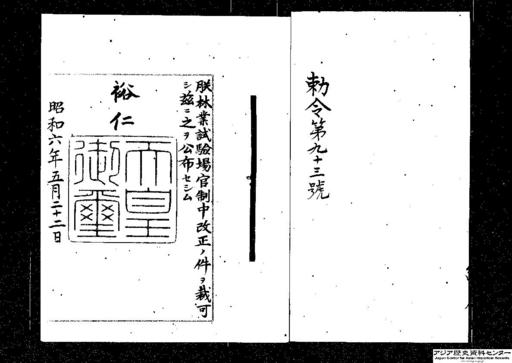 勅令第九十三號
朕林業試驗場官制中改正ノ件ヲ裁可
シ茲ニ之ヲ公布セシム
裕仁
天皇御璽
昭和六年五月二十二日
アジア歴史資料センター
Japan Center for Asian Historical Records